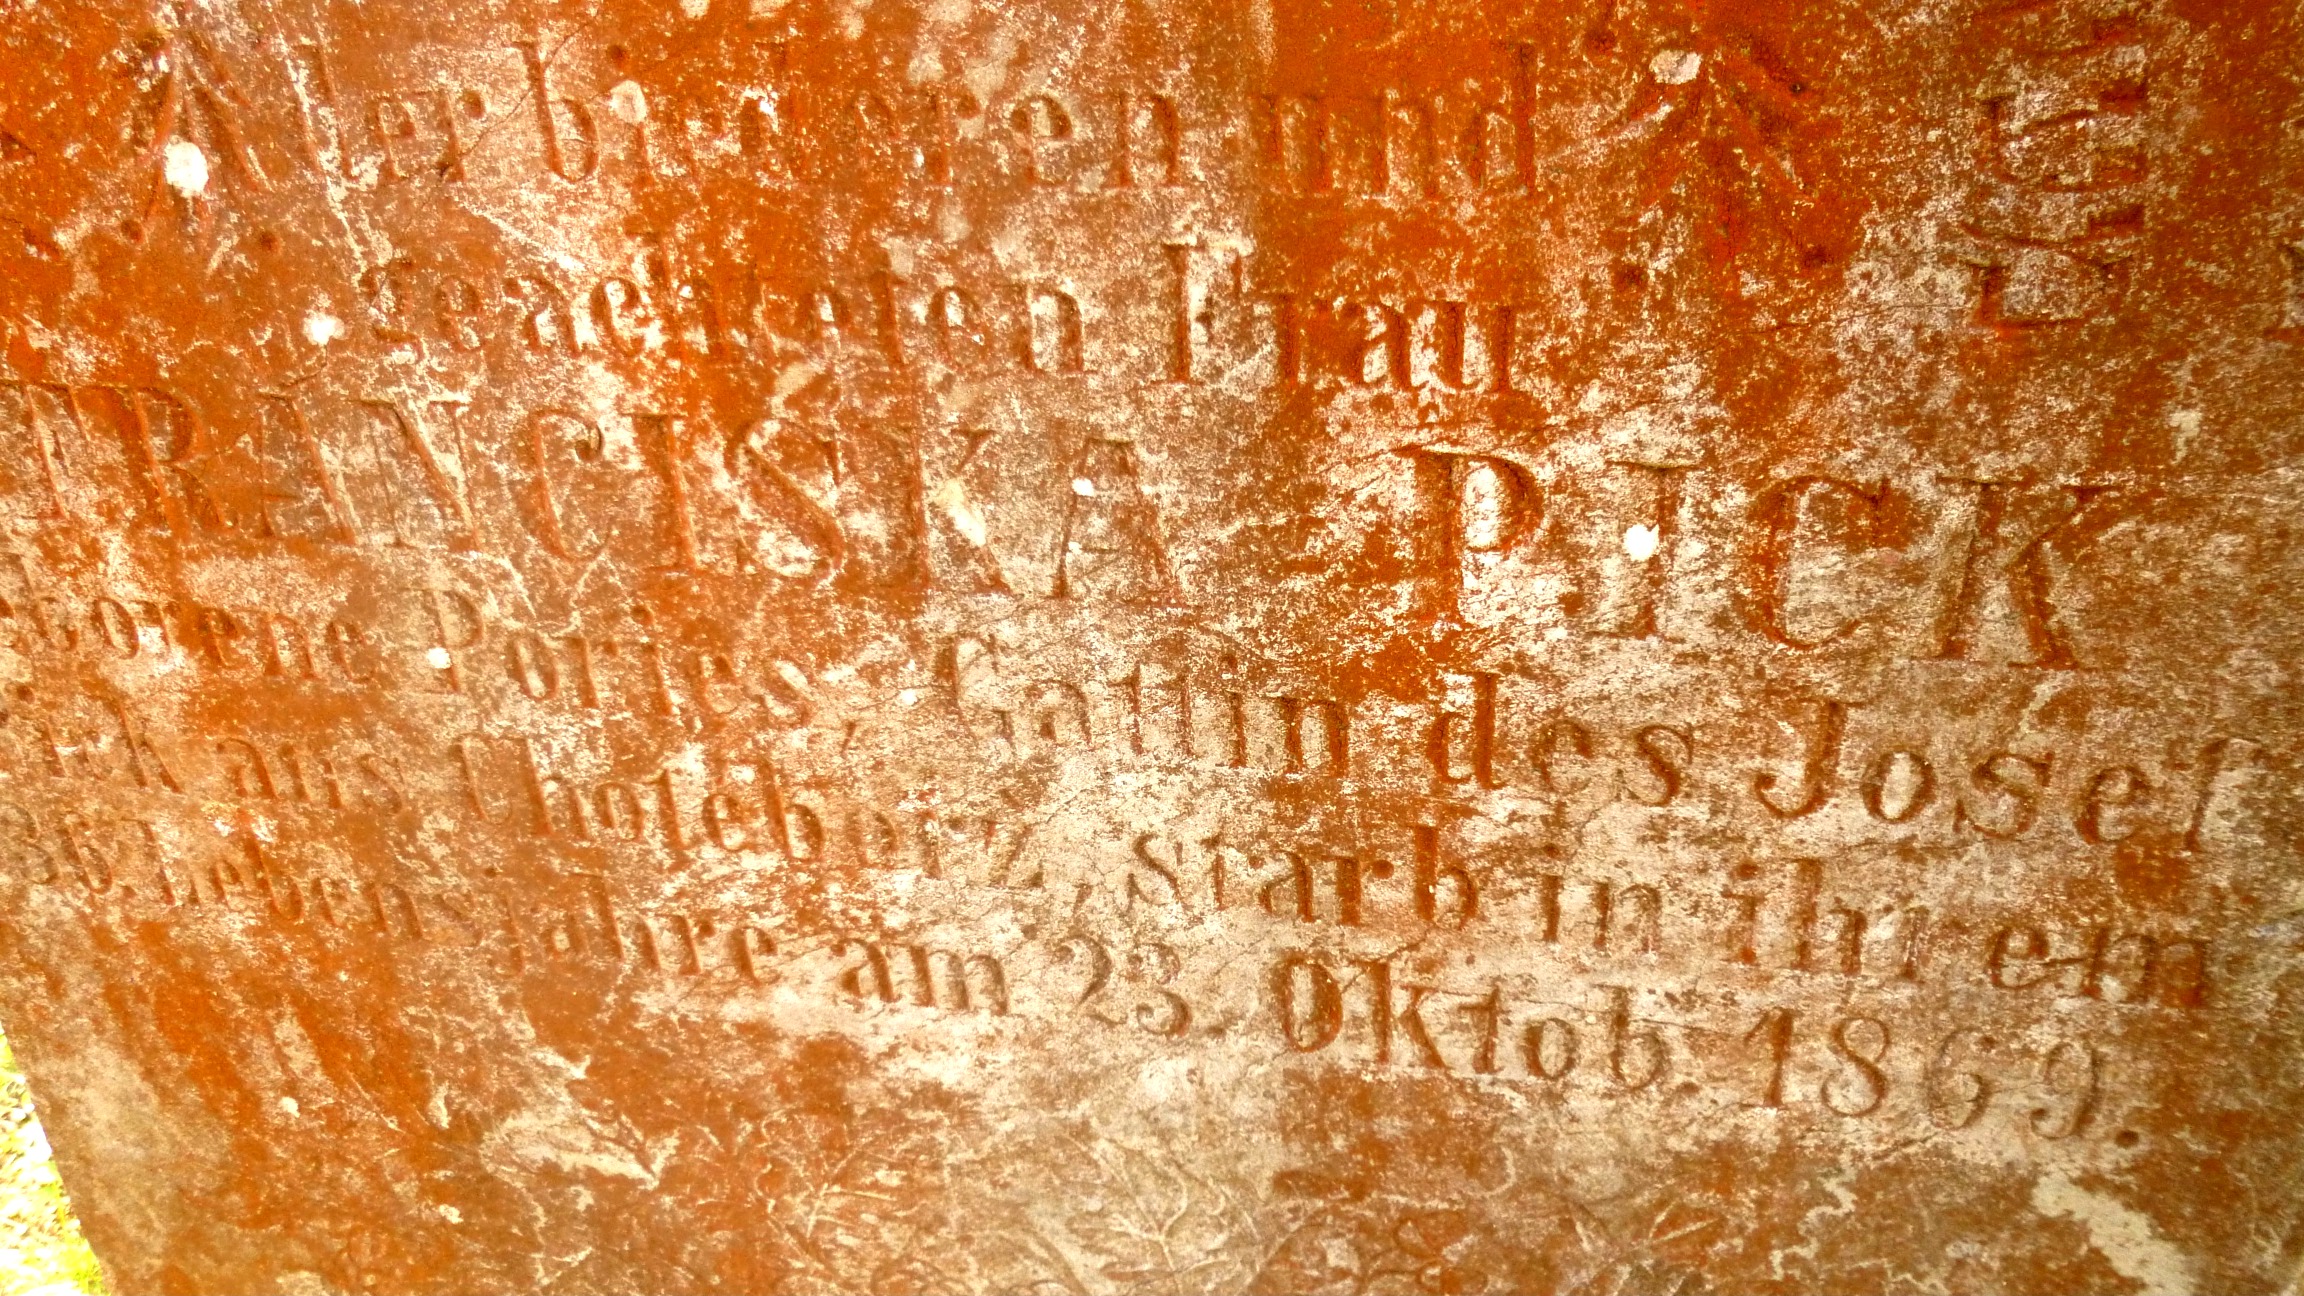 der biederen und
geachteten Frau
FRANCISKA PICK
eborene Pories, Gattin des Josef
ick aus Chotěborz, starb in ihrem
36. Lebensjahre am 23. Oktob. 1869.